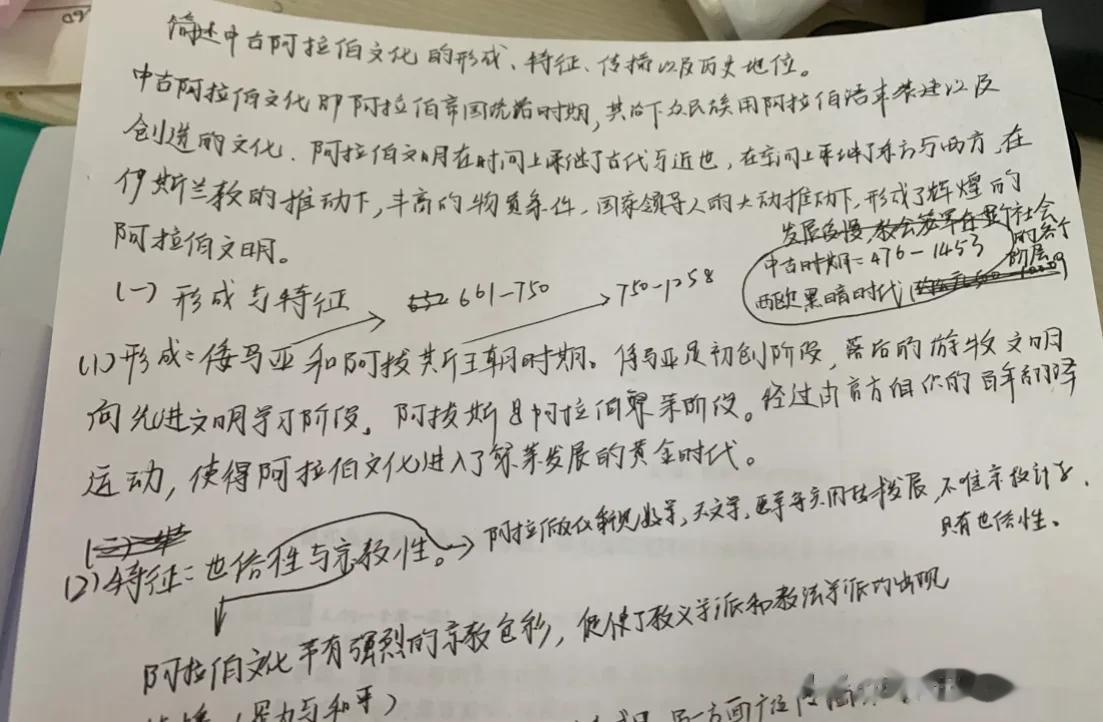 简述中古阿拉伯文化的形成、特征、传播以及历史地位。
中古阿拉伯文化即阿拉伯帝国统治时期,其治下众民族用阿拉伯语来装建以及
创造的文化.阿拉伯文明在时间上承继了古代与近世,在空间上承继了东方与西方,在
伊斯兰教的推动下,丰富的物质条件,国家领导人的大力推动下,形成了辉煌的
阿拉伯文明。
发展缓慢,教会笼罩在整个社会
的各个
阶层
中古时期=476-1453
西欧黑暗时代
(一)形成与特征
661-750
750-1258
(1)形成:倭马亚和阿拔斯王朝时期。倭马亚是初创阶段,落后的游牧文明
向先进文明学习阶段,阿拔斯是阿拉伯繁荣阶段。经过由官方组织的百年翻译
运动,使得阿拉伯文化进入了繁荣发展的黄金时代。
(2)特征:世俗性与宗教性。→阿拉伯数学,天文学,医学等实用技术发展,不唯宗教
具有世俗性。
阿拉伯文化带有强烈的宗教色彩,促使了教义学派和教法学派的出现
(暴力与和平)